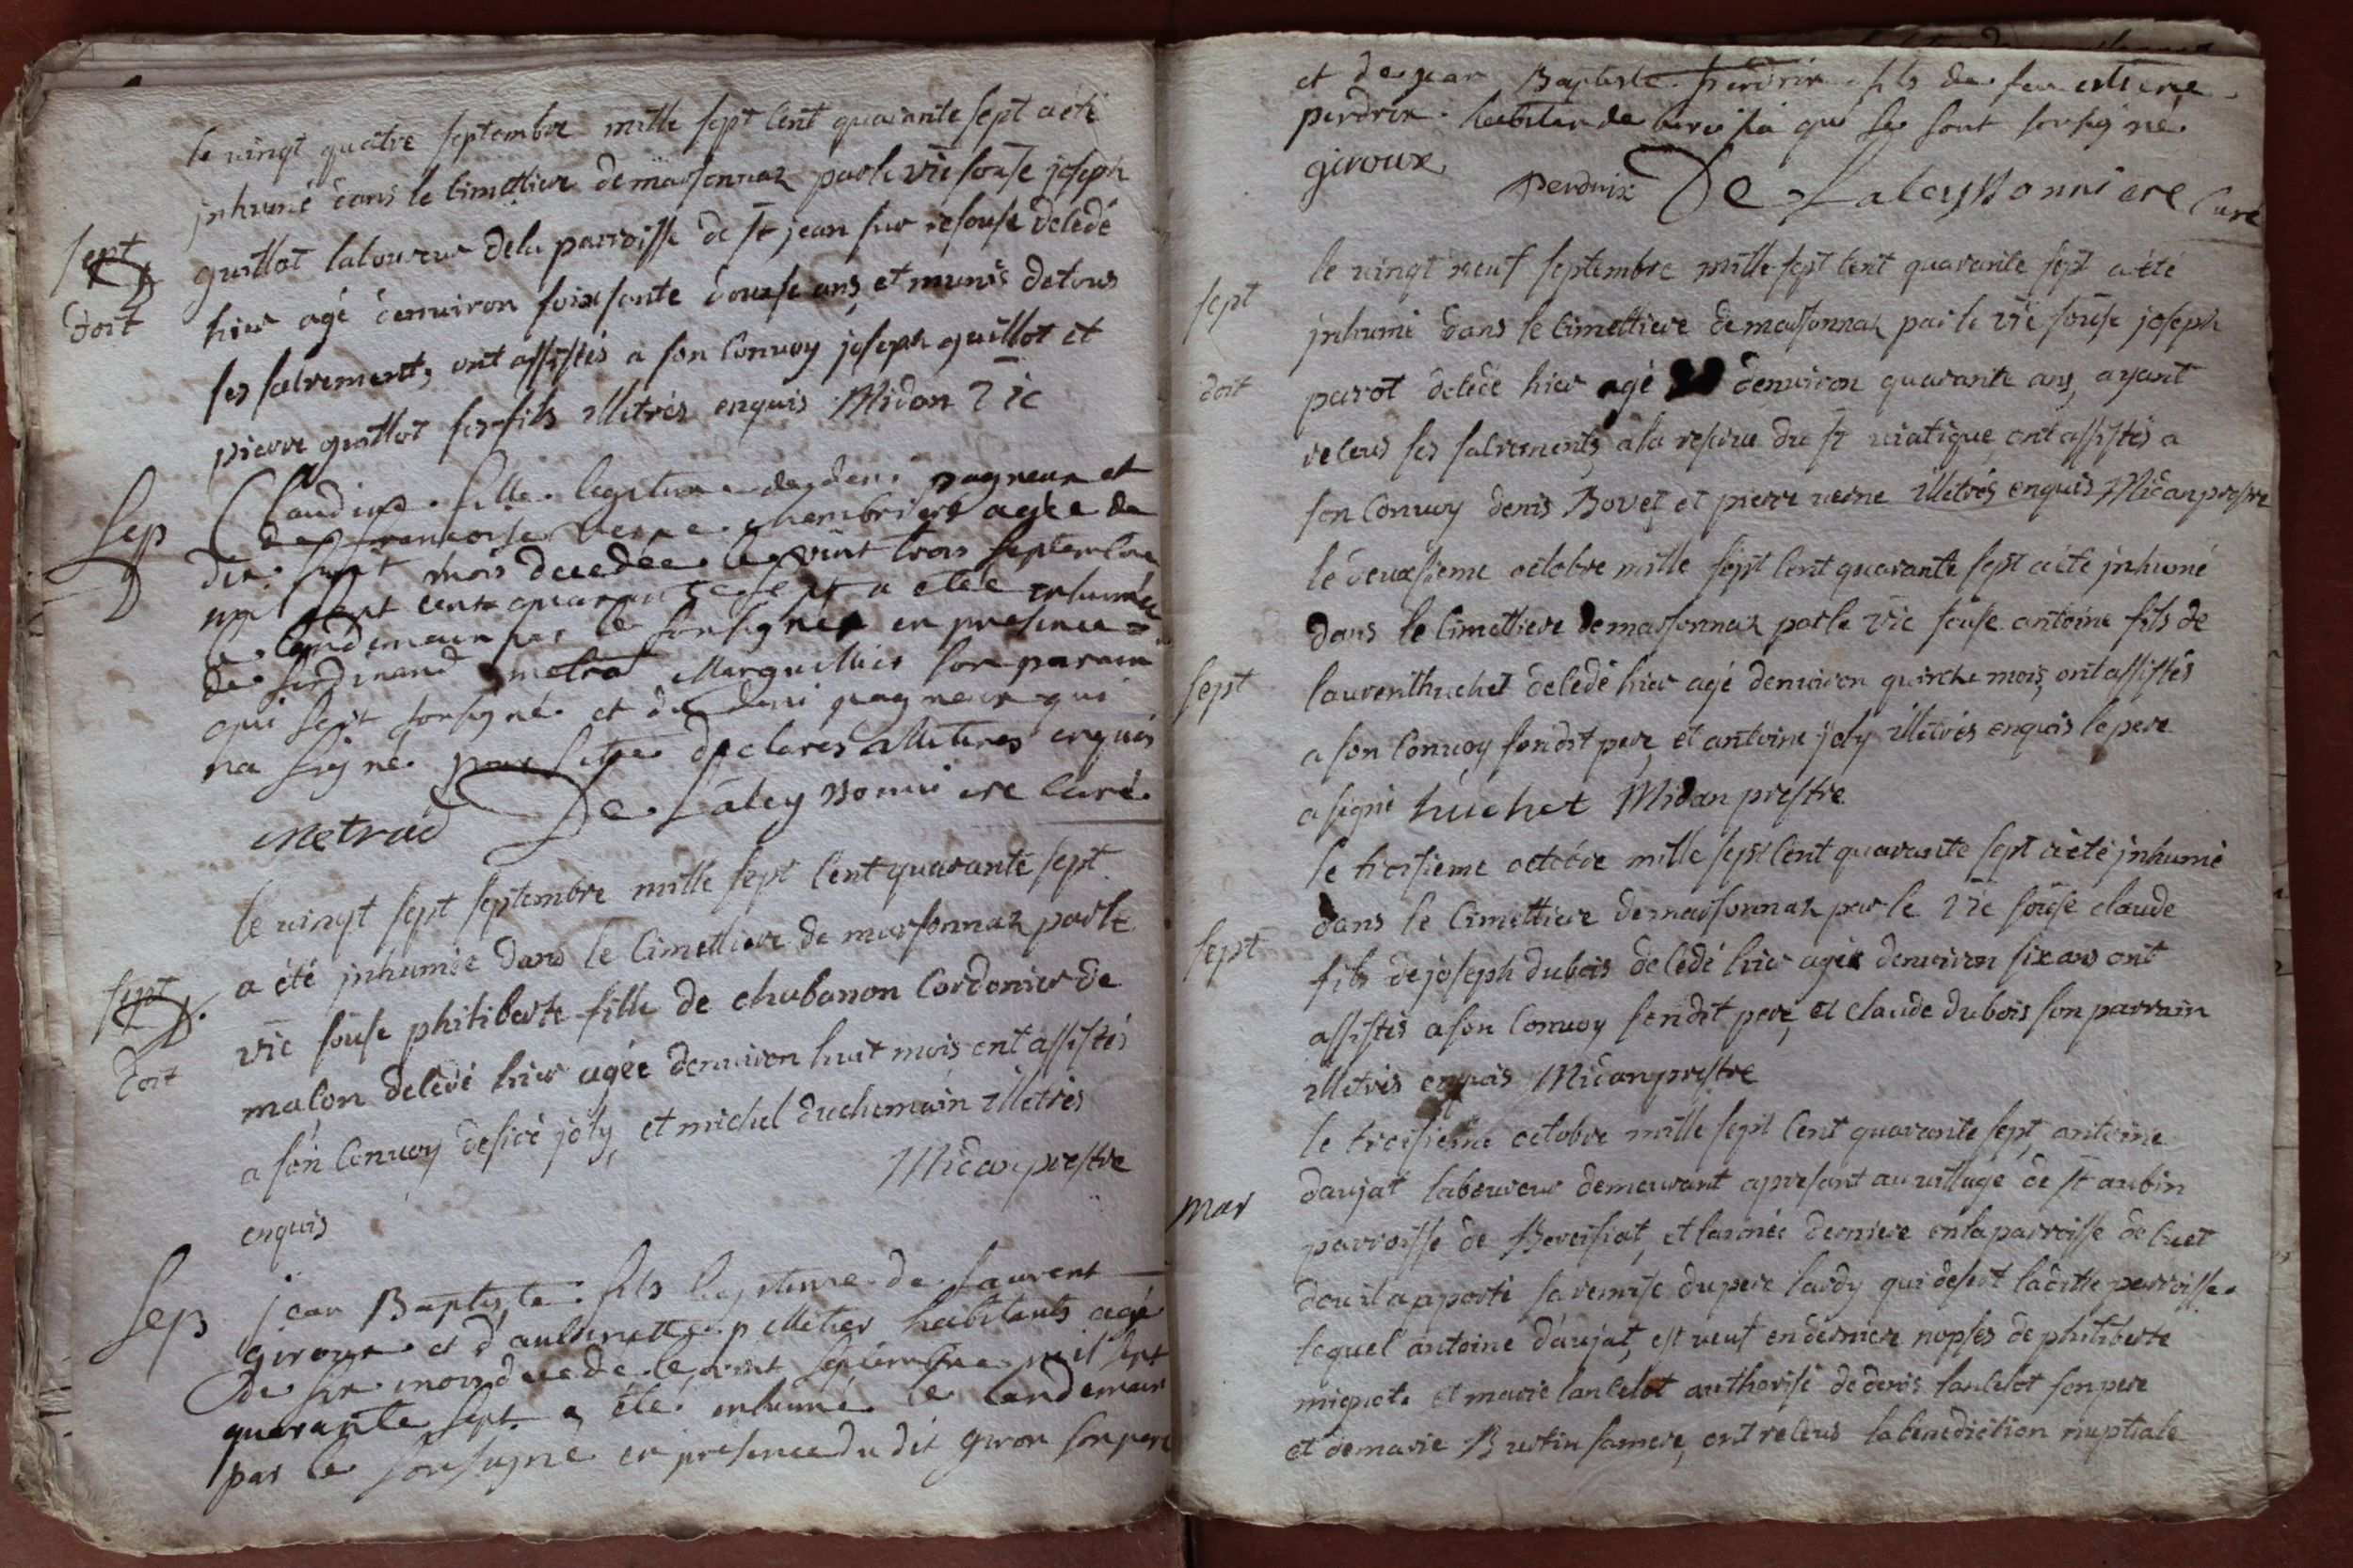 le vingt quatre septembre mille sept cent quarante sept a été
inhumé dans le cimettiere de marsonnaz par le vic souse joseph
Sept
guillot laboureur de la parroisse de st jean sur resouse décédé
doit
hier agé d'environ soixsante douse ans et munis de tous
ses sacrements, ont assistés a son convoy joseph guillot et
pierre guillot ses fils illetrés enquis Midan Vic
Sep
Claudine fille legitime de deni pagneux et
de francoise verne chambriere agée de
dix huit mois decedée le vint trois septembre
mil sept cent quarante sept a etée inhumée
le landemain par le soussigné en presence
de ferdinand metra Marguillier son parain
qui sest sousigné et de deni pagneux qui
na signé pour setre declarés illiteres enquis
Metrad De Laleyssonniere curé
le vingt sept septembre mille sept cent quarante sept
a été inhumée dans le cimettiere de marsonnaz par le
sept
vic souse philiberte fille de chabanon cordonier de
doit
malon décédé hier agée d'environ huit mois ont assistés
a son convoy desiré joly, et michel duchemain illetrés
enquis Midan prestre
Sep
jean Baptiste fils legitime de laurent
giroux et d'anthinette pelletier habitants agé
de six mois decede le vint septembre mil sept
quarante sept a été inhumé le landemain
par le sousigné en presence du dit giron son pere
et de jean Baptiste perdrix fils de feu estiene
perdrix habitan de bereisia qui se sont sousigné
giroux perdrix De Laleyssonniere Curé
le vingt neuf septembre mille sept cent quarante sept a été
sept
inhumé dans le cimettiere de marsonnaz par le vic souse joseph
doit
parot décédé hier agé d'environ quarante ans, ayant
receus ses sacrements, a la reserve du st viatique, ont assistés a
son convoy denis Bovet, et pierre verne illetrés enquis Midan prestre
le deuxsieme octobre mille sept cent quarante sept a été inhumé
dans le cimettiere de marsonnaz par le vic souse antoine fils de
sept
laurent huchet décédé hier agé d'environ quinse mois, ont assistés
a son convoy sondit pere, et antoine joly illetrés enquis le pere
a signé huchet Midan prestre
le troisieme octobre mille sept cent quarante sept a été inhumé
dans le cimettiere de marsonnaz par le vic souse claude
sept
fils de joseph dubois décédé hier agé d'environ six ans ont
assistés a son convoy sondit pere, et claude dubois son parrain
illetrés enquis Midan prestre
le troisieme octobre mille sept cent quarante sept, antoine
daujat laboureur demeurant apresant au village de st aubin
mar
parroisse de Bereisiat, et l'année derniere en la parroisse de cuet
dou il a apporté sa remise du pere lardy qui desert la ditte parroisse
lequel antoine daujat, est veuf en derniere nopses de philiberte
mignot et marie lancelot authorisé de denis lancelot son pere
et de marie Burtin sa mere, ont receus la benediction nuptiale